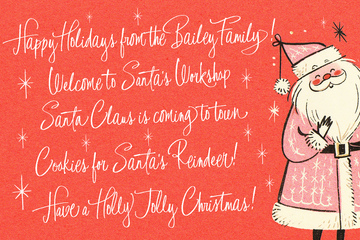 Happy Holidays from the Bailey Family!
Welcome to Santa's Workshop
Santa Claus is coming to town
Cookies for Santa's Reindeer!
Have a Holly Jolly Christmas!